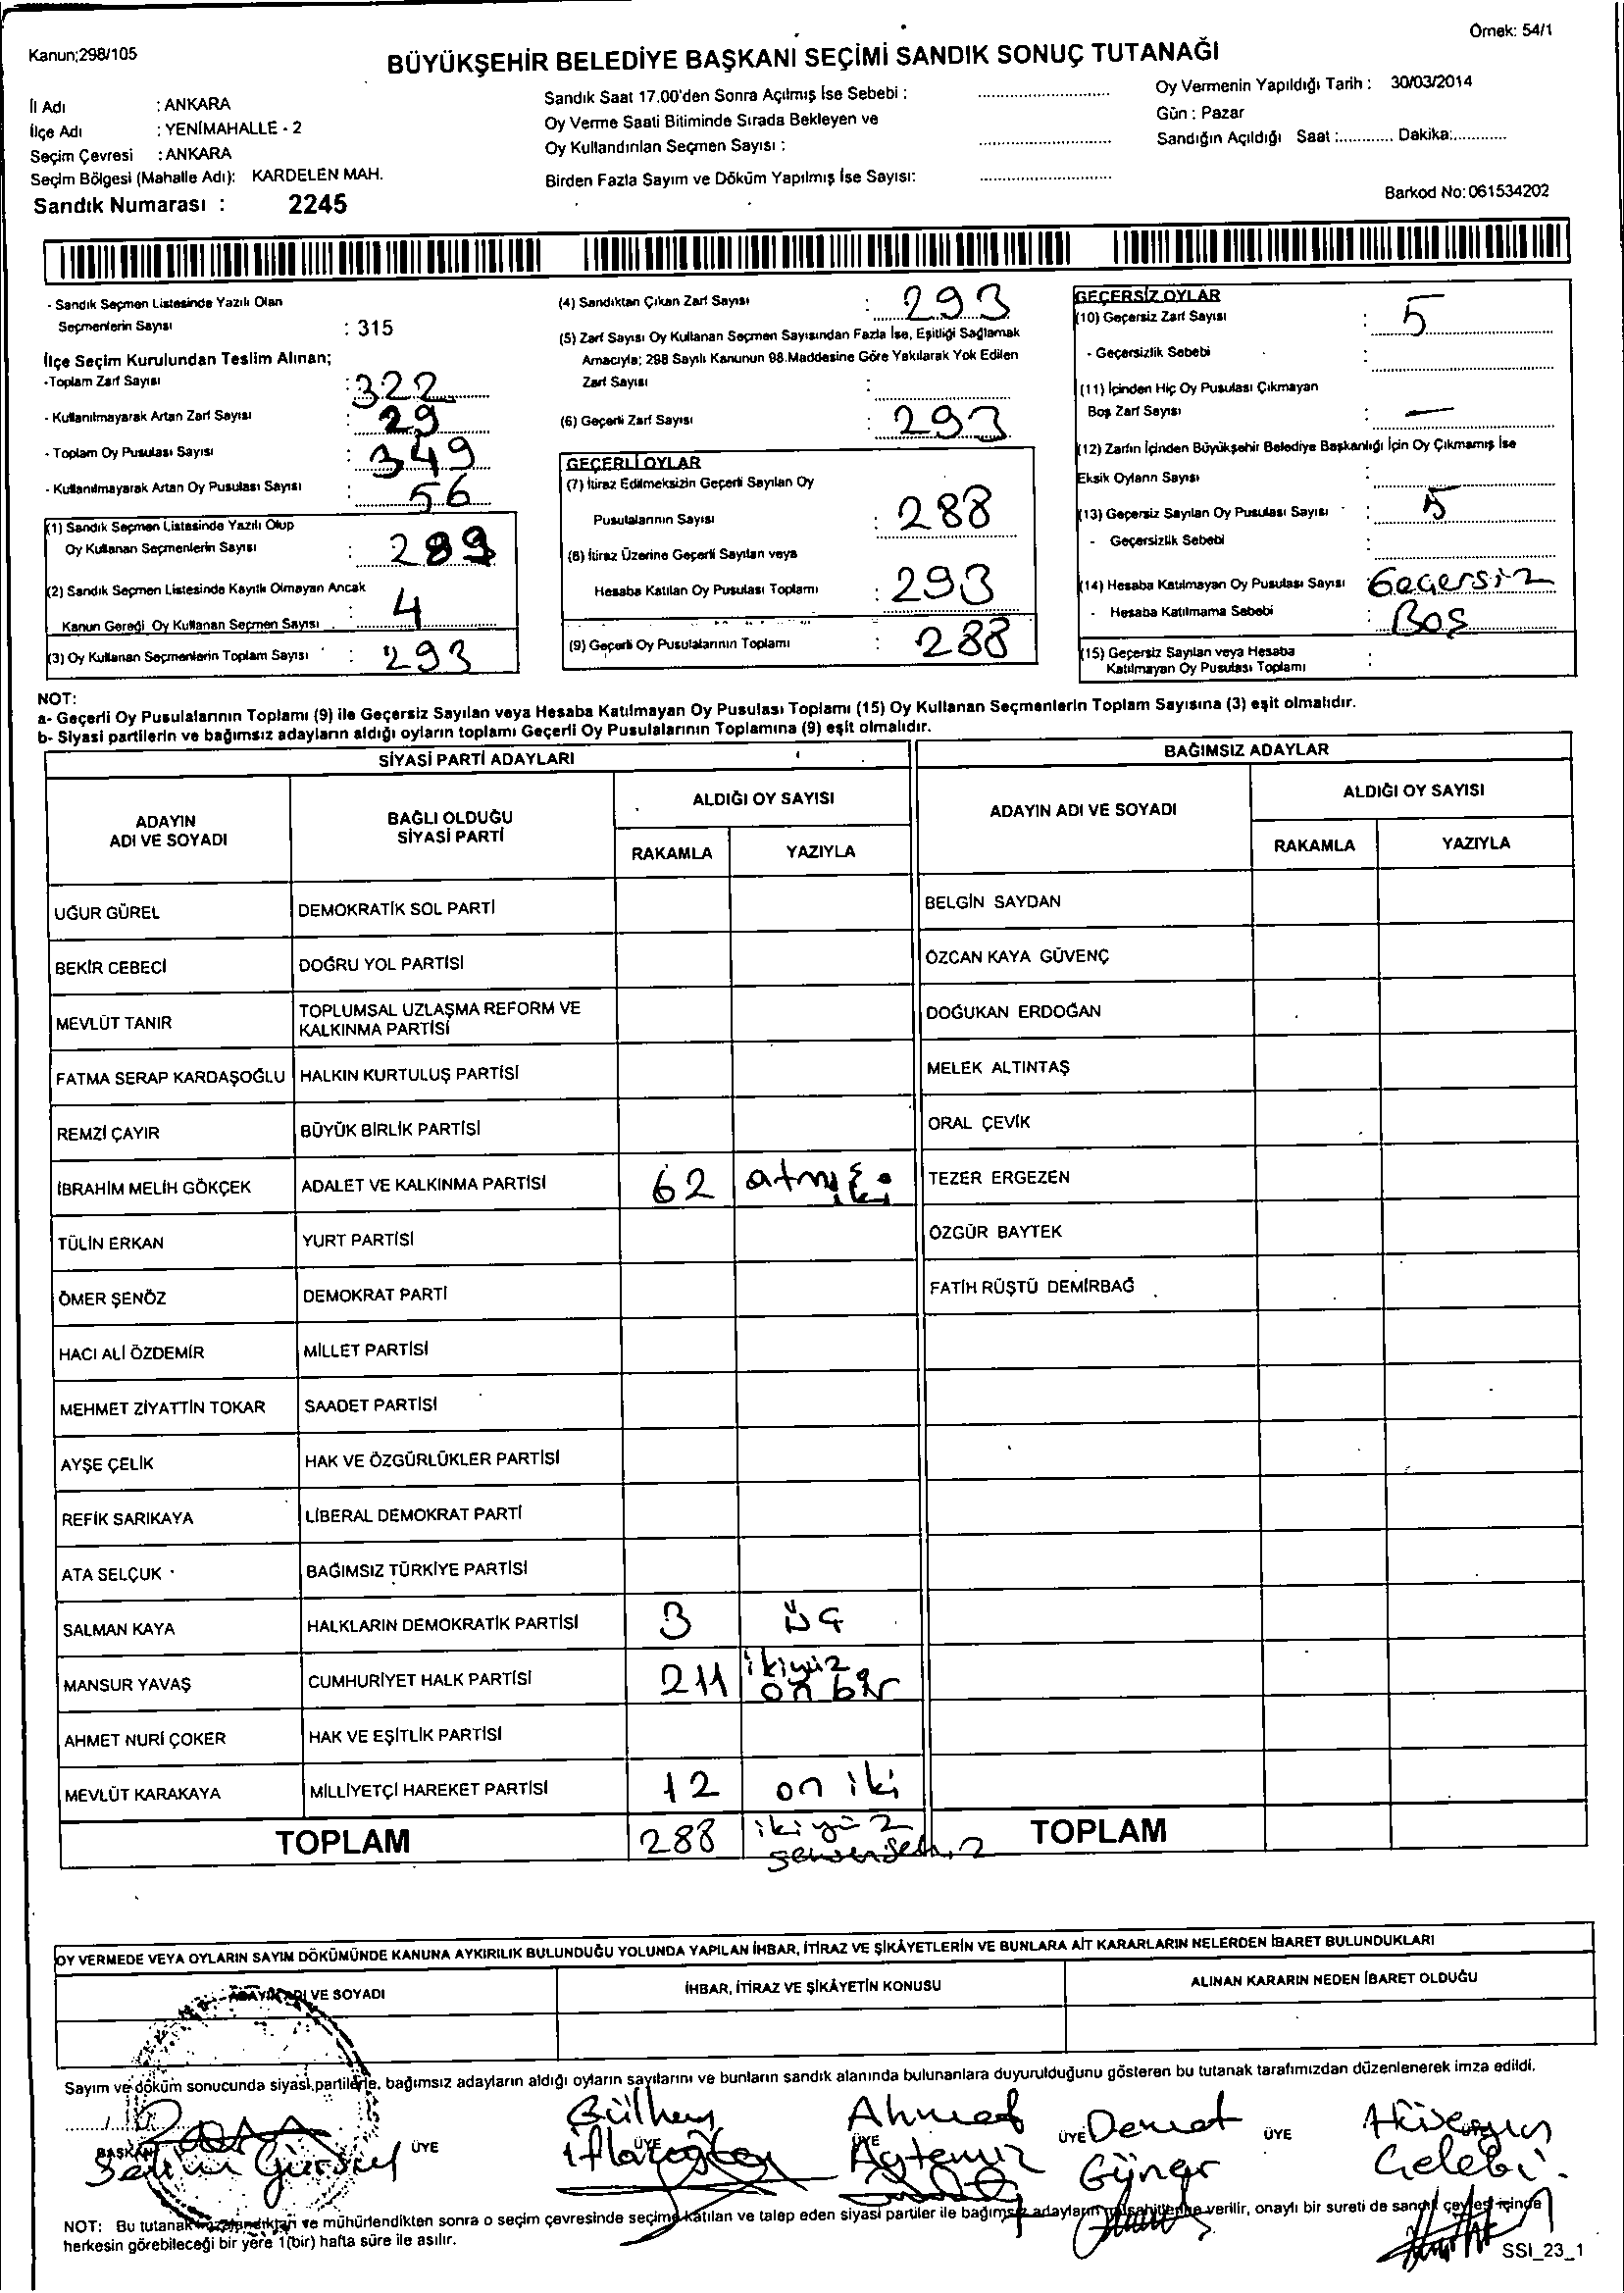 Örnek: 54/1
Kanun;298/105
BÜYÜKŞEHİR BELEDİYE BAŞKANI SEÇİMİ SANDIK SONUÇ TUTANAĞI
İl Adı : ANKARA
İlçe Adı : YENİMAHALLE - 2
Seçim Çevresi : ANKARA
Seçim Bölgesi (Mahalle Adı): KARDELEN MAH.
Sandık Numarası : 2245
Sandık Saat 17.00'den Sonra Açılmış İse Sebebi :
Oy Verme Saati Bitiminde Sırada Bekleyen ve
Oy Kullandırılan Seçmen Sayısı :
Birden Fazla Sayım ve Döküm Yapılmış İse Sayısı:
Oy Vermenin Yapıldığı Tarih : 30/03/2014
Gün : Pazar
Sandığın Açıldığı Saat :............ Dakika:............
Barkod No:061534202
- Sandık Seçmen Listesinde Yazılı Olan
Seçmenlerin Sayısı : 315
İlçe Seçim Kurulundan Teslim Alınan;
-Toplam Zarf Sayısı : 322
- Kullanılmayarak Artan Zarf Sayısı : 29
- Toplam Oy Pusulası Sayısı : 349
- Kullanılmayarak Artan Oy Pusulası Sayısı : 56
(1) Sandık Seçmen Listesinde Yazılı Olup
Oy Kullanan Seçmenlerin Sayısı : 289
(2) Sandık Seçmen Listesinde Kayıtlı Olmayan Ancak
Kanun Gereği Oy Kullanan Seçmen Sayısı : 4
(3) Oy Kullanan Seçmenlerin Toplam Sayısı : 293
(4) Sandıktan Çıkan Zarf Sayısı : 293
(5) Zarf Sayısı Oy Kullanan Seçmen Sayısından Fazla İse, Eşitliği Sağlamak
Amacıyla; 298 Sayılı Kanunun 98.Maddesine Göre Yakılarak Yok Edilen
Zarf Sayısı :
(6) Geçerli Zarf Sayısı : 293
GEÇERLİ OYLAR
(7) İtiraz Edilmeksizin Geçerli Sayılan Oy
Pusulalarının Sayısı : 288
(8) İtiraz Üzerine Geçerli Sayılan veya
Hesaba Katılan Oy Pusulası Toplamı : 293
(9) Geçerli Oy Pusulalarının Toplamı : 288
GEÇERSİZ OYLAR
(10) Geçersiz Zarf Sayısı : 5
- Geçersizlik Sebebi :
(11) İçinden Hiç Oy Pusulası Çıkmayan
Boş Zarf Sayısı : —
(12) Zarfın İçinden Büyükşehir Belediye Başkanlığı İçin Oy Çıkmamış İse
Eksik Oyların Sayısı :
(13) Geçersiz Sayılan Oy Pusulası Sayısı : 5
- Geçersizlik Sebebi :
(14) Hesaba Katılmayan Oy Pusulası Sayısı Geçersiz
- Hesaba Katılmama Sebebi : Boş
(15) Geçersiz Sayılan veya Hesaba
Katılmayan Oy Pusulası Toplamı :
NOT:
a- Geçerli Oy Pusulalarının Toplamı (9) ile Geçersiz Sayılan veya Hesaba Katılmayan Oy Pusulası Toplamı (15) Oy Kullanan Seçmenlerin Toplam Sayısına (3) eşit olmalıdır.
b- Siyasi partilerin ve bağımsız adayların aldığı oyların toplamı Geçerli Oy Pusulalarının Toplamına (9) eşit olmalıdır.
SİYASİ PARTİ ADAYLARI BAĞIMSIZ ADAYLAR
ADAYIN ADI VE SOYADI BAĞLI OLDUĞU SİYASİ PARTİ ALDIĞI OY SAYISI RAKAMLA YAZIYLA ADAYIN ADI VE SOYADI ALDIĞI OY SAYISI RAKAMLA YAZIYLA
UĞUR GÜREL DEMOKRATİK SOL PARTİ BELGİN SAYDAN
BEKİR CEBECİ DOĞRU YOL PARTİSİ ÖZCAN KAYA GÜVENÇ
MEVLÜT TANIR TOPLUMSAL UZLAŞMA REFORM VE KALKINMA PARTİSİ DOĞUKAN ERDOĞAN
FATMA SERAP KARDAŞOĞLU HALKIN KURTULUŞ PARTİSİ MELEK ALTINTAŞ
REMZİ ÇAYIR BÜYÜK BİRLİK PARTİSİ ORAL ÇEVİK
İBRAHİM MELİH GÖKÇEK ADALET VE KALKINMA PARTİSİ 62 atmış iki TEZER ERGEZEN
TÜLİN ERKAN YURT PARTİSİ ÖZGÜR BAYTEK
ÖMER ŞENÖZ DEMOKRAT PARTİ FATİH RÜŞTÜ DEMİRBAĞ
HACI ALİ ÖZDEMİR MİLLET PARTİSİ
MEHMET ZİYATTİN TOKAR SAADET PARTİSİ
AYŞE ÇELİK HAK VE ÖZGÜRLÜKLER PARTİSİ
REFİK SARIKAYA LİBERAL DEMOKRAT PARTİ
ATA SELÇUK BAĞIMSIZ TÜRKİYE PARTİSİ
SALMAN KAYA HALKLARIN DEMOKRATİK PARTİSİ 3 üç
MANSUR YAVAŞ CUMHURİYET HALK PARTİSİ 211 ikiyüz on bir
AHMET NURİ ÇOKER HAK VE EŞİTLİK PARTİSİ
MEVLÜT KARAKAYA MİLLİYETÇİ HAREKET PARTİSİ 12 on iki
TOPLAM 288 ikiyüz TOPLAM
OY VERMEDE VEYA OYLARIN SAYIM DÖKÜMÜNDE KANUNA AYKIRILIK BULUNDUĞU YOLUNDA YAPILAN İHBAR, İTİRAZ VE ŞİKÂYETLERİN VE BUNLARA AİT KARARLARIN NELERDEN İBARET BULUNDUKLARI
VE SOYADI İHBAR, İTİRAZ VE ŞİKÂYETİN KONUSU ALINAN KARARIN NEDEN İBARET OLDUĞU
Sayım ve döküm sonucunda siyasi partilerle, bağımsız adayların aldığı oyların sayılarını ve bunların sandık alanında bulunanlara duyurulduğunu gösteren bu tutanak tarafımızdan düzenlenerek imza edildi.
Ahmet Demet Hüseyin
BAŞKAN ÜYE ÜYE ÜYE ÜYE ÜYE
Selim Gürsel Aytemiz Güner Çelebi
NOT: Bu tutanak ve mühürlendikten sonra o seçim çevresinde seçime katılan ve talep eden siyasi partiler ile bağımsız adayların verilir, onaylı bir sureti de sandık çevresi içinde
herkesin görebileceği bir yere 1(bir) hafta süre ile asılır.
SSI_23_1